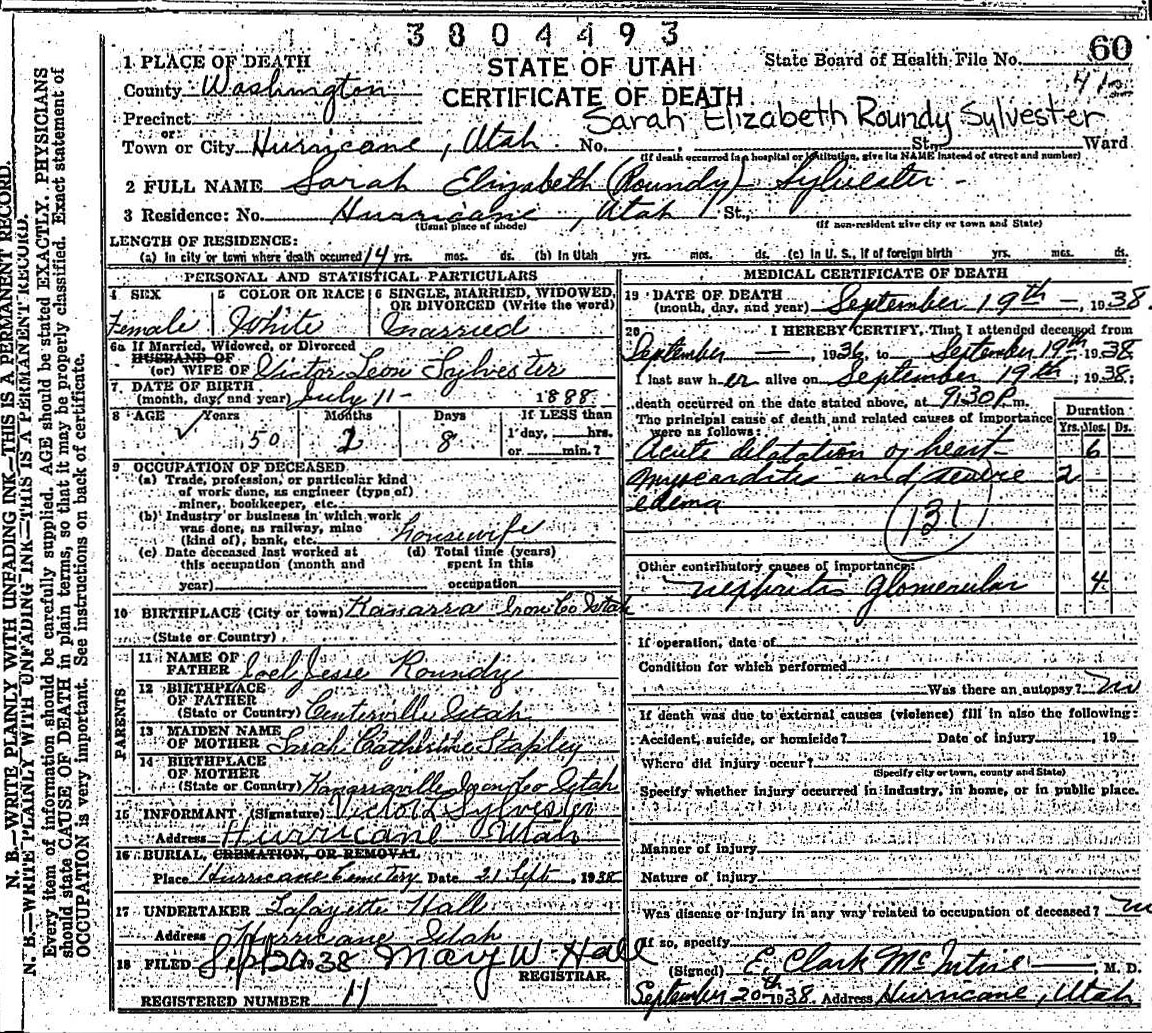 3804493
60
1 PLACE OF DEATH
STATE OF UTAH
State Board of Health File No.
County Washington
CERTIFICATE OF DEATH
Precinct
Sarah Elizabeth Roundy Sylvester
or
Town or City Hurricane, Utah No. St. Ward
(If death occurred in a hospital or institution, give its NAME instead of street and number)
2 FULL NAME Sarah Elizabeth (Roundy) Sylvester
3 Residence: No. Hurricane, Utah St.,
(Usual place of abode) (If non-resident give city or town and State)
LENGTH OF RESIDENCE:
(a) In city or town where death occurred 14 yrs. mos. ds. (b) In Utah yrs. mos. ds. (c) In U. S., if of foreign birth yrs. mos. ds.
PERSONAL AND STATISTICAL PARTICULARS
4 SEX 5 COLOR OR RACE 6 SINGLE, MARRIED, WIDOWED,
OR DIVORCED (Write the word)
Female White Married
6a If Married, Widowed, or Divorced
HUSBAND OF
(or) WIFE OF Victor Leon Sylvester
7 DATE OF BIRTH
(month, day, and year) July 11 - 1888
8 AGE Years Months Days If LESS than
50 2 8 1 day, hrs.
or min.?
9 OCCUPATION OF DECEASED
(a) Trade, profession, or particular kind
of work done, as engineer (type of)
miner, bookkeeper, etc.
(b) Industry or business in which work
was done, as railway, mine
(kind of), bank, etc. housewife
(c) Date deceased last worked at (d) Total time (years)
this occupation (month and spent in this
year) occupation
10 BIRTHPLACE (City or town) Kanarra Iron Co Utah
(State or Country)
PARENTS
11 NAME OF
FATHER Joel Jesse Roundy
12 BIRTHPLACE
OF FATHER
(State or Country) Centerville Utah
13 MAIDEN NAME
OF MOTHER Sarah Catherine Stapley
14 BIRTHPLACE
OF MOTHER
(State or Country) Kanarraville Iron Co Utah
15 INFORMANT (Signature) Victor L Sylvester
Address Hurricane Utah
16 BURIAL, CREMATION, OR REMOVAL
Place Hurricane Cemetery Date 21 Sept, 1938
17 UNDERTAKER Lafayette Hall
Address Hurricane Utah
18 FILED Sept 20 1938 Mary W. Hall
REGISTRAR.
REGISTERED NUMBER 11
MEDICAL CERTIFICATE OF DEATH
19 DATE OF DEATH
(month, day, and year) September 19th - 1938.
20 I HEREBY CERTIFY, That I attended deceased from
September - , 1936, to September 19th 1938
I last saw her alive on September 19th, 1938;
death occurred on the date stated above, at 9:30 P. m.
The principal cause of death and related causes of importance
were as follows:
Duration
Yrs. Mos. Ds.
Acute dilatation of heart - 6
myocarditis and severe 2
edema
(131)
Other contributory causes of importance:
nephritis glomerular 4
If operation, date of
Condition for which performed
Was there an autopsy? no
If death was due to external causes (violence) fill in also the following:
Accident, suicide, or homicide? Date of injury 19
Where did injury occur?
(Specify city or town, county and State)
Specify whether injury occurred in industry, in home, or in public place.
Manner of injury
Nature of injury
Was disease or injury in any way related to occupation of deceased? no
If so, specify
(Signed) E. Clark McIntire, M. D.
September 20th 1938. Address Hurricane, Utah
N. B.—WRITE PLAINLY WITH UNFADING INK—THIS IS A PERMANENT RECORD.
N. B.—WRITE PLAINLY WITH UNFADING INK—THIS IS A PERMANENT RECORD.
Every item of information should be carefully supplied. AGE should be stated EXACTLY. PHYSICIANS
should state CAUSE OF DEATH in plain terms, so that it may be properly classified. Exact statement of
OCCUPATION is very important. See instructions on back of certificate.